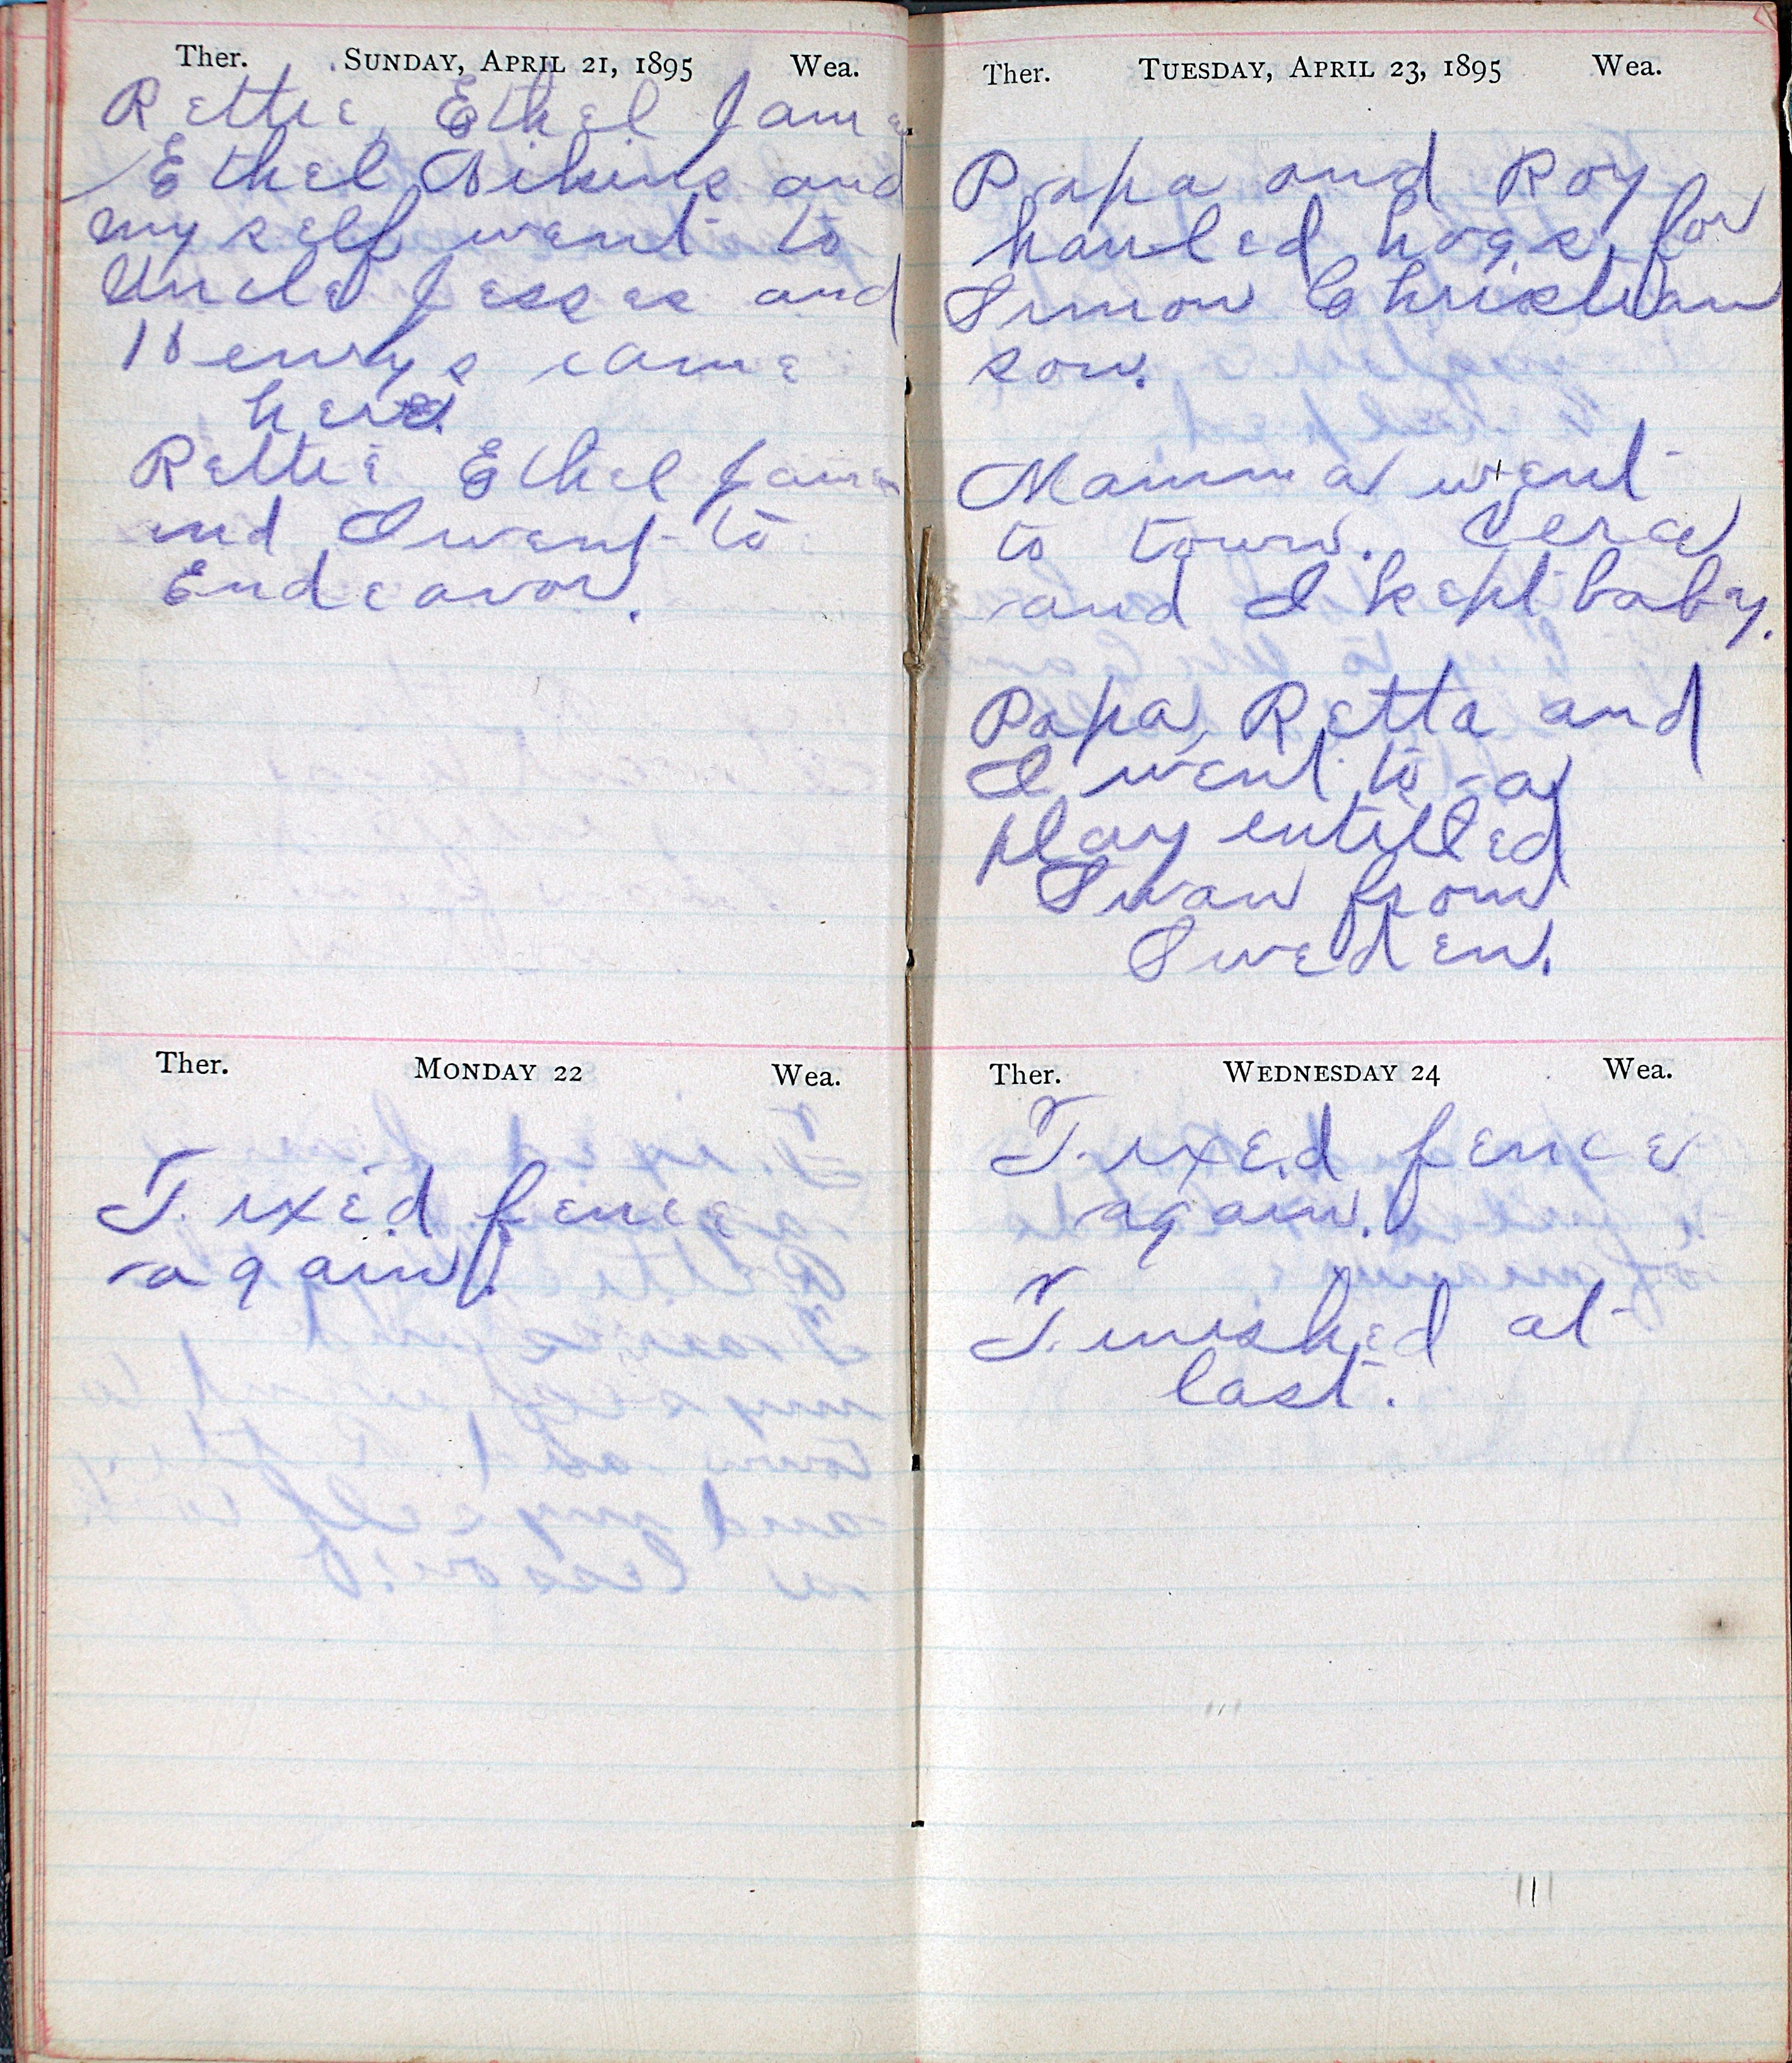 Ther. SUNDAY, APRIL 21, 1895 Wea.
Rettie, Ethel Jame
Ethel Aikins and
my self went to
Uncle Jesses and
Henrys came
here.
Rettie Ethel Jame
and I went to
Endeavor.
Ther. MONDAY 22 Wea.
Fixed fence
again.
Ther. TUESDAY, APRIL 23, 1895 Wea.
Papa and Roy
hauled hogs for
Simon Christian
son.
Mamma went
to town. Vera
and I kept baby.
Papa, Retta and
I went to a
play entitled
Swan from
Sweden.
Ther. WEDNESDAY 24 Wea.
Fixed fence
again.
Finished at
last.